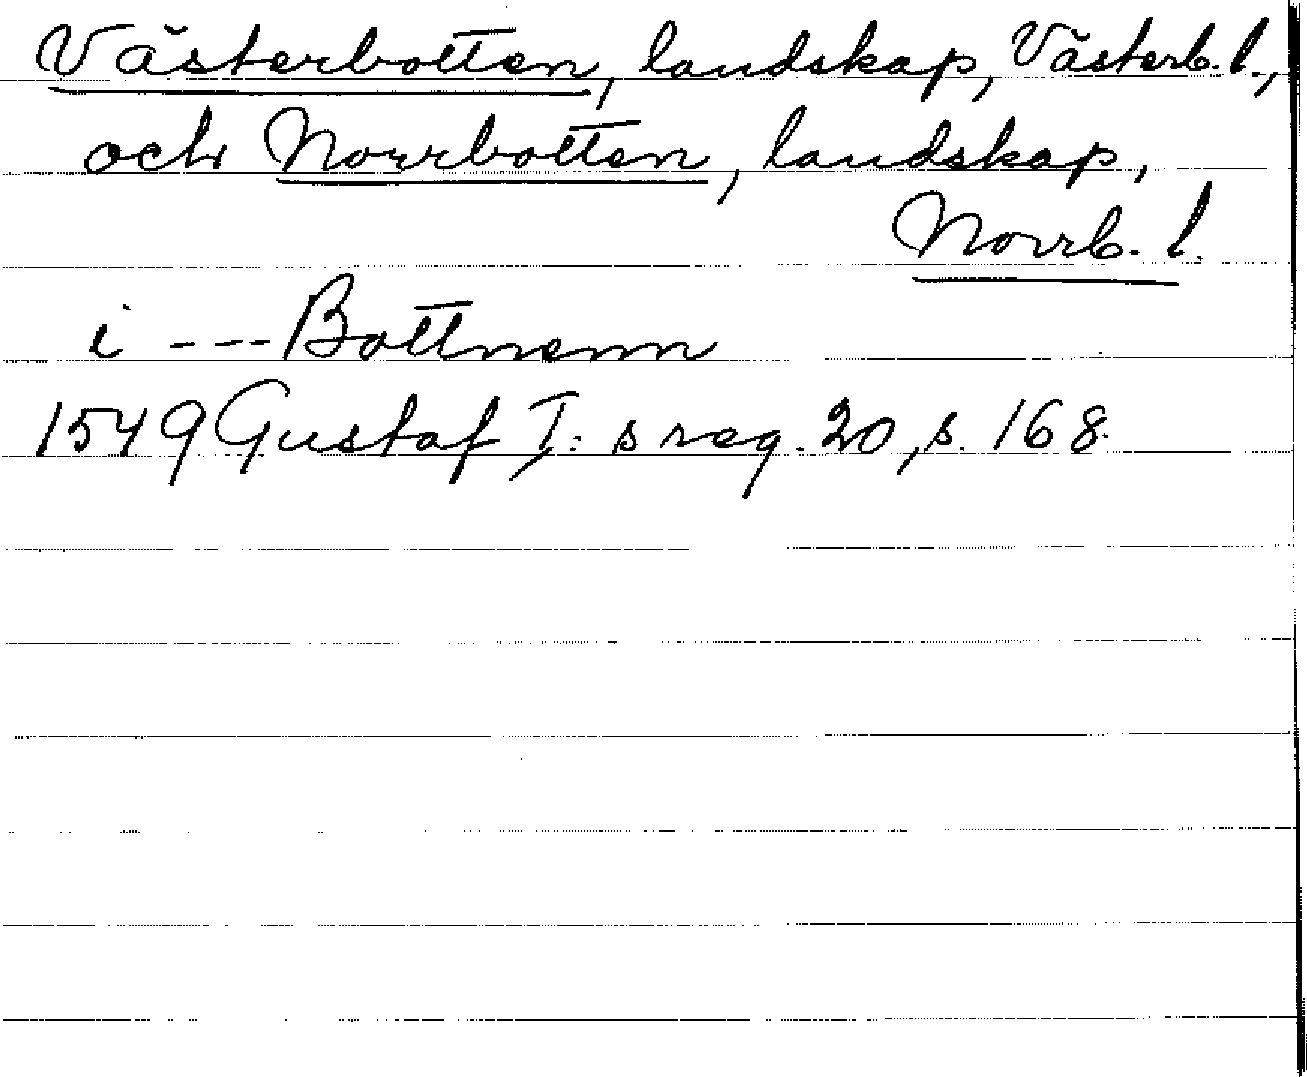 Västerbotten, landskap, Västerb. l.,
och Norrbotten, landskap,
Norrb. l.
i --- Bottnenn
1549 Gustaf I: s reg. 20, s. 168.